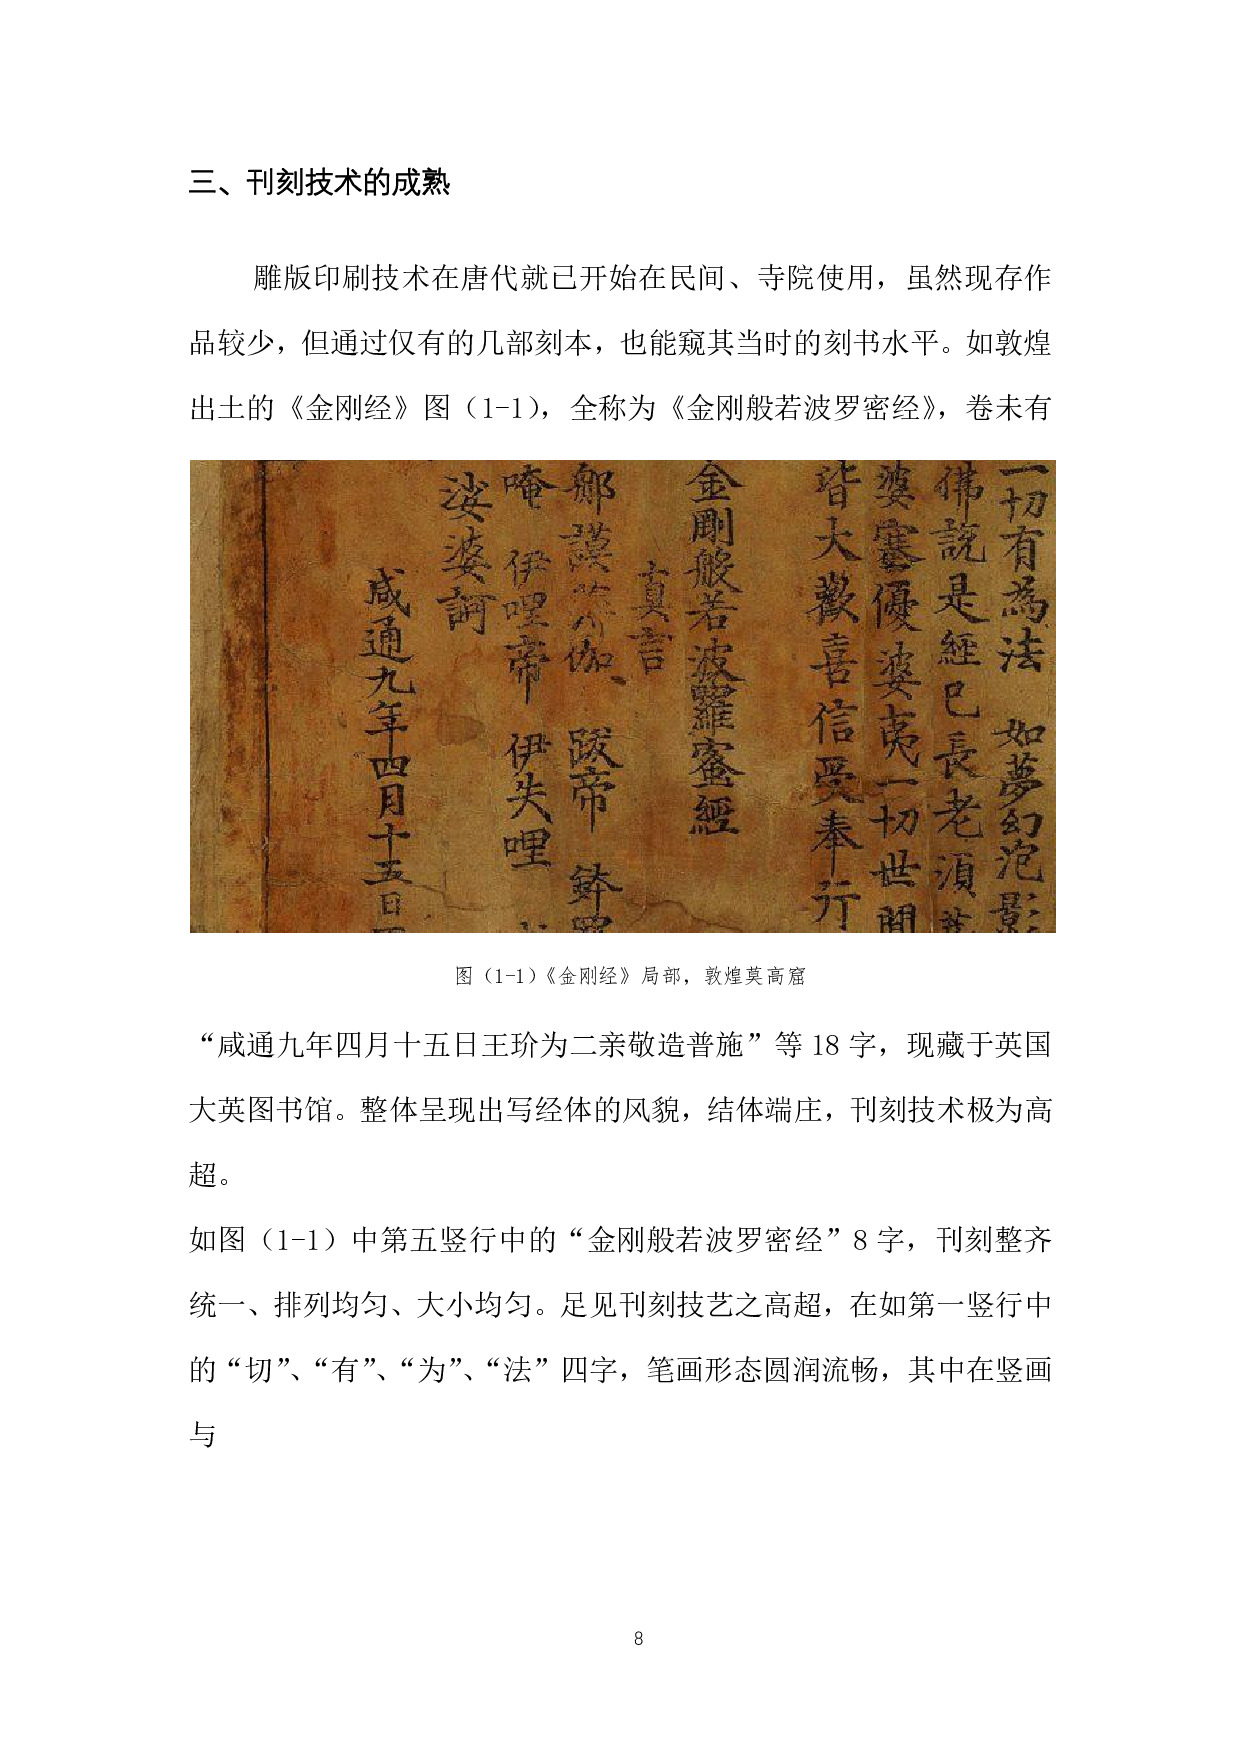 三、刊刻技术的成熟
雕版印刷技术在唐代就已开始在民间、寺院使用，虽然现存作
品较少，但通过仅有的几部刻本，也能窥其当时的刻书水平。如敦煌
出土的《金刚经》图（1-1），全称为《金刚般若波罗密经》，卷未有
一切有為法 如夢幻泡影
佛說是經已長老須菩
婆塞優婆夷一切世間
皆大歡喜信受奉行
金剛般若波羅蜜經
真言
跋帝 鉢羅
唵 伊哩帝 伊失哩
娑婆訶
咸通九年四月十五日
图（1-1）《金刚经》局部，敦煌莫高窟
“咸通九年四月十五日王玠为二亲敬造普施”等 18 字，现藏于英国
大英图书馆。整体呈现出写经体的风貌，结体端庄，刊刻技术极为高
超。
如图（1-1）中第五竖行中的“金刚般若波罗密经”8 字，刊刻整齐
统一、排列均匀、大小均匀。足见刊刻技艺之高超，在如第一竖行中
的“切”、“有”、“为”、“法”四字，笔画形态圆润流畅，其中在竖画
与
8